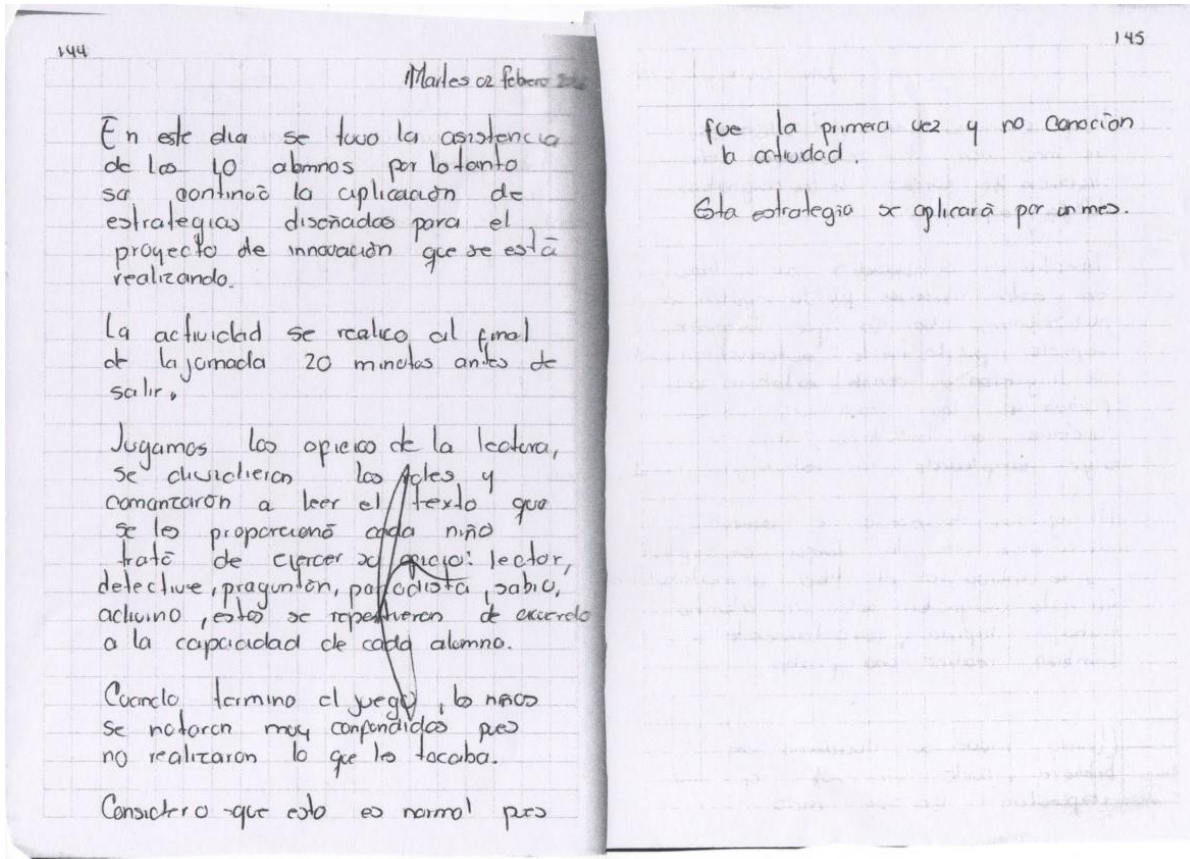 144
Martes 02 febrero
En este dia se tuvo la asistencia
de los 10 alumnos por lo tanto
se continuó la aplicación de
estrategias diseñadas para el
proyecto de innovación que se está
realizando.
La actividad se realico al final
de la jornada 20 minutos antes de
salir.
Jugamos los oficios de la lectura,
se dividieron los roles y
comenzaron a leer el texto que
se les proporcionó cada niño
trató de ejercer su oficio: lector,
detective, pregunton, parodista, sabio,
adivino, estos se repartieron de acuerdo
a la capacidad de cada alumno.
Cuando termino el juego, los niños
se notaron muy confundidos pues
no realizaron lo que les tocaba.
Considero que esto es normal pues
145
fue la primera vez y no conocian
la actividad.
Esta estrategia se aplicará por un mes.